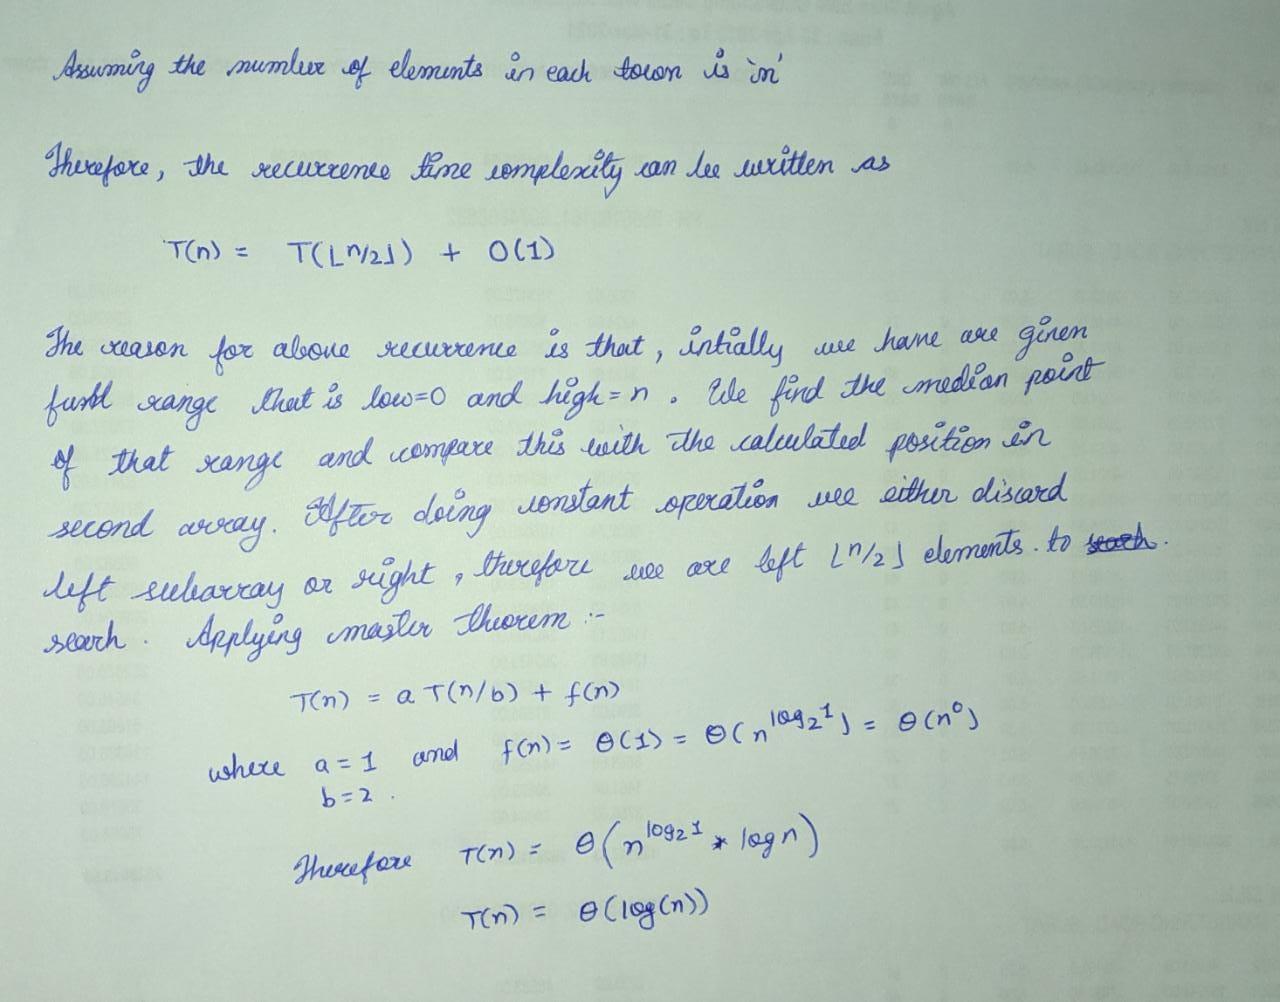 Assuming the number of elements in each town is 'n'
Therefore, the recurrence time complexity can be written as
T(n) = T(⌊n/2⌋) + O(1)
The reason for above recurrence is that, intially we have are given
full range that is low=0 and high=n. We find the median point
of that range and compare this with the calculated position in
second array. After doing constant operation we either discard
left subarray or right, therefore we are left ⌊n/2⌋ elements. to search.
search. Applying master theorem :-
T(n) = a T(n/b) + f(n)
where a = 1 and f(n) = Θ(1) = Θ(n^log₂1) = Θ(n⁰)
b=2.
Therefore T(n) = Θ(n^log₂1 * logn)
T(n) = Θ(log(n))